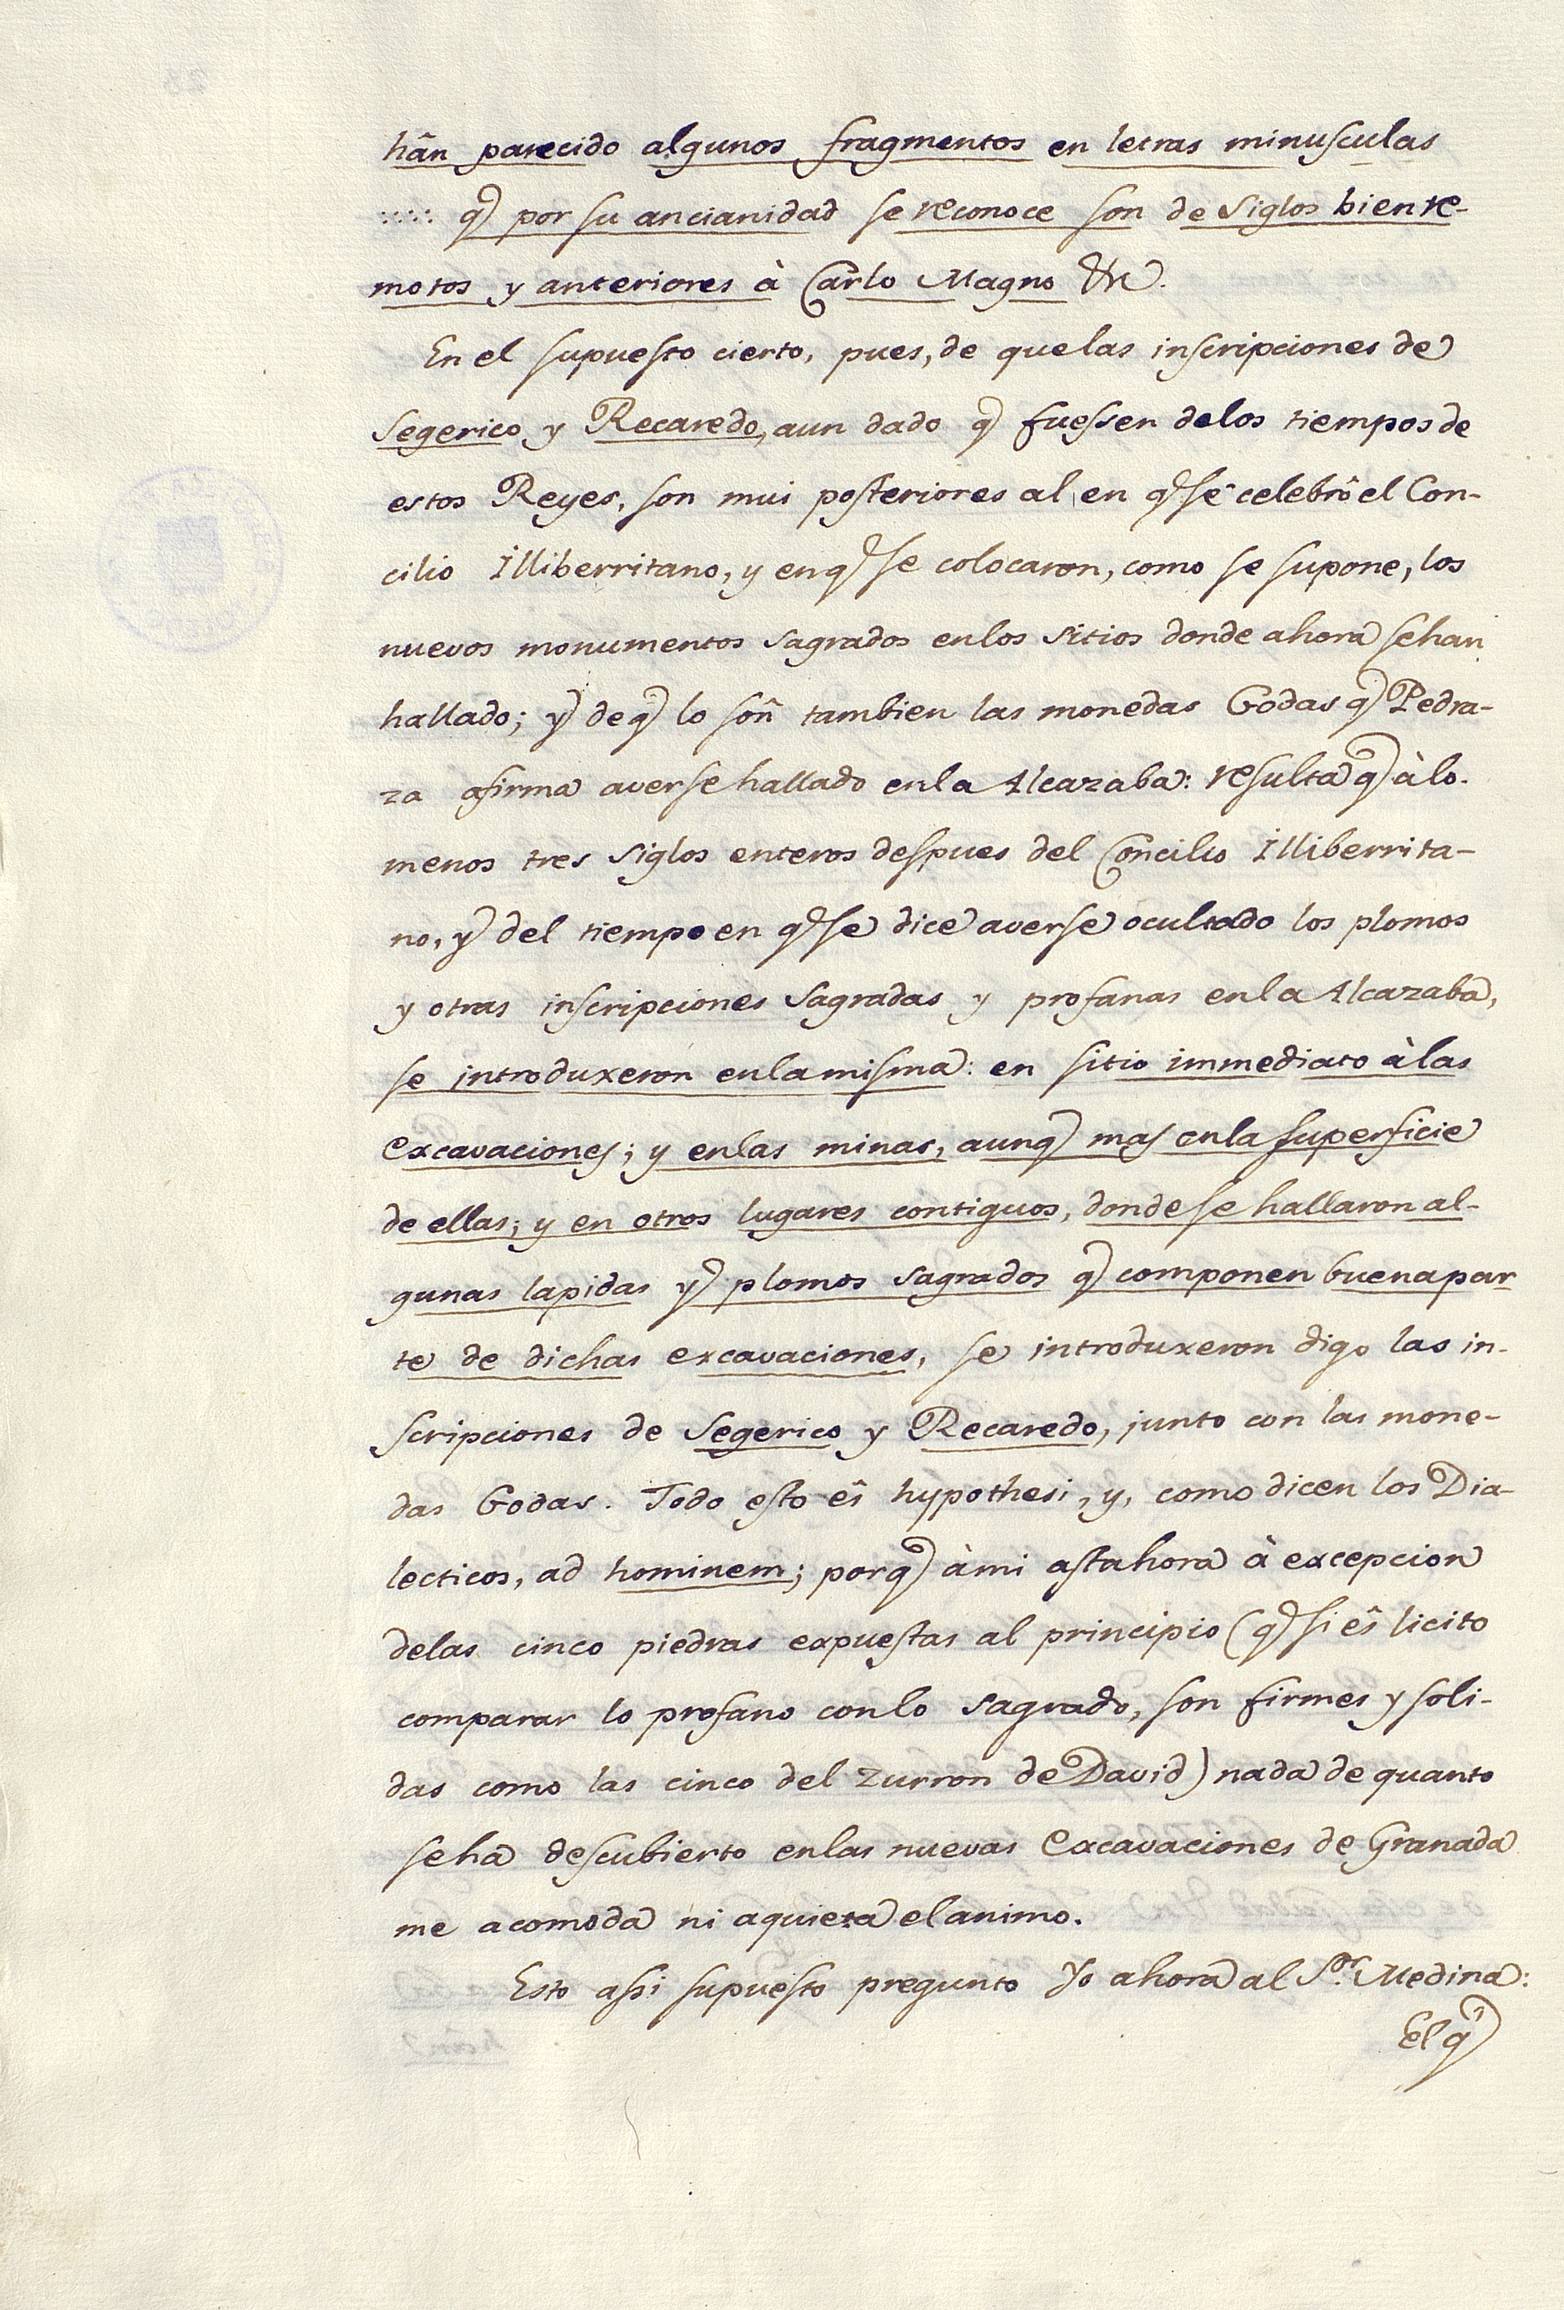 hân parecido algunos fragmentos en letras minusculas
::::: q por su ancianidad se reconoce son de Siglos bien re-
motos y anteriores à Carlo Magno &c.
En el supuesto cierto, pues, de que las inscripciones de
Segerico y Recaredo, aun dado q fuessen delos tiempos de
estos Reyes, son mui posteriores al en q se celebrô el Con-
cilio Illiberritano, y en q se colocaron, como se supone, los
nuevos monumentos sagrados enlos sitios donde ahora sehan
hallado; y de q lo soñ tambien las monedas Godas q Pedra-
za afirma averse hallado enla Alcazaba: resulta q à lo
menos tres siglos enteros despues del Concilio Illiberrita-
no, y del tiempo en q se dice averse ocultado los plomos
y otras inscripciones sagradas y profanas enla Alcazaba,
se introduxeron enlamisma: en sitio immediato à las
excavaciones; y enlas minas, aunq mas enla superficie
de ellas; y en otros lugares contiguos, donde se hallaron al-
gunas lapidas y plomos sagrados q componen buena par
te de dichas excavaciones, se introduxeron digo las in-
scripciones de Segerico y Recaredo, junto con las mone-
das Godas. Todo esto eŝ hypothesi, y, como dicen los Dia-
lecticos, ad hominem; porq à mi astahora à excepcion
delas cinco piedras expuestas al principio (q si eŝ licito
comparar lo profano conlo sagrado, son firmes y soli-
das como las cinco del zurron de David) nada de quanto
seha descubierto enlas nuevas excavaciones de Granada
me acomoda ni aquieta el animo.
Esto assi supuesto pregunto Yo ahora al S.or Medina:
El q